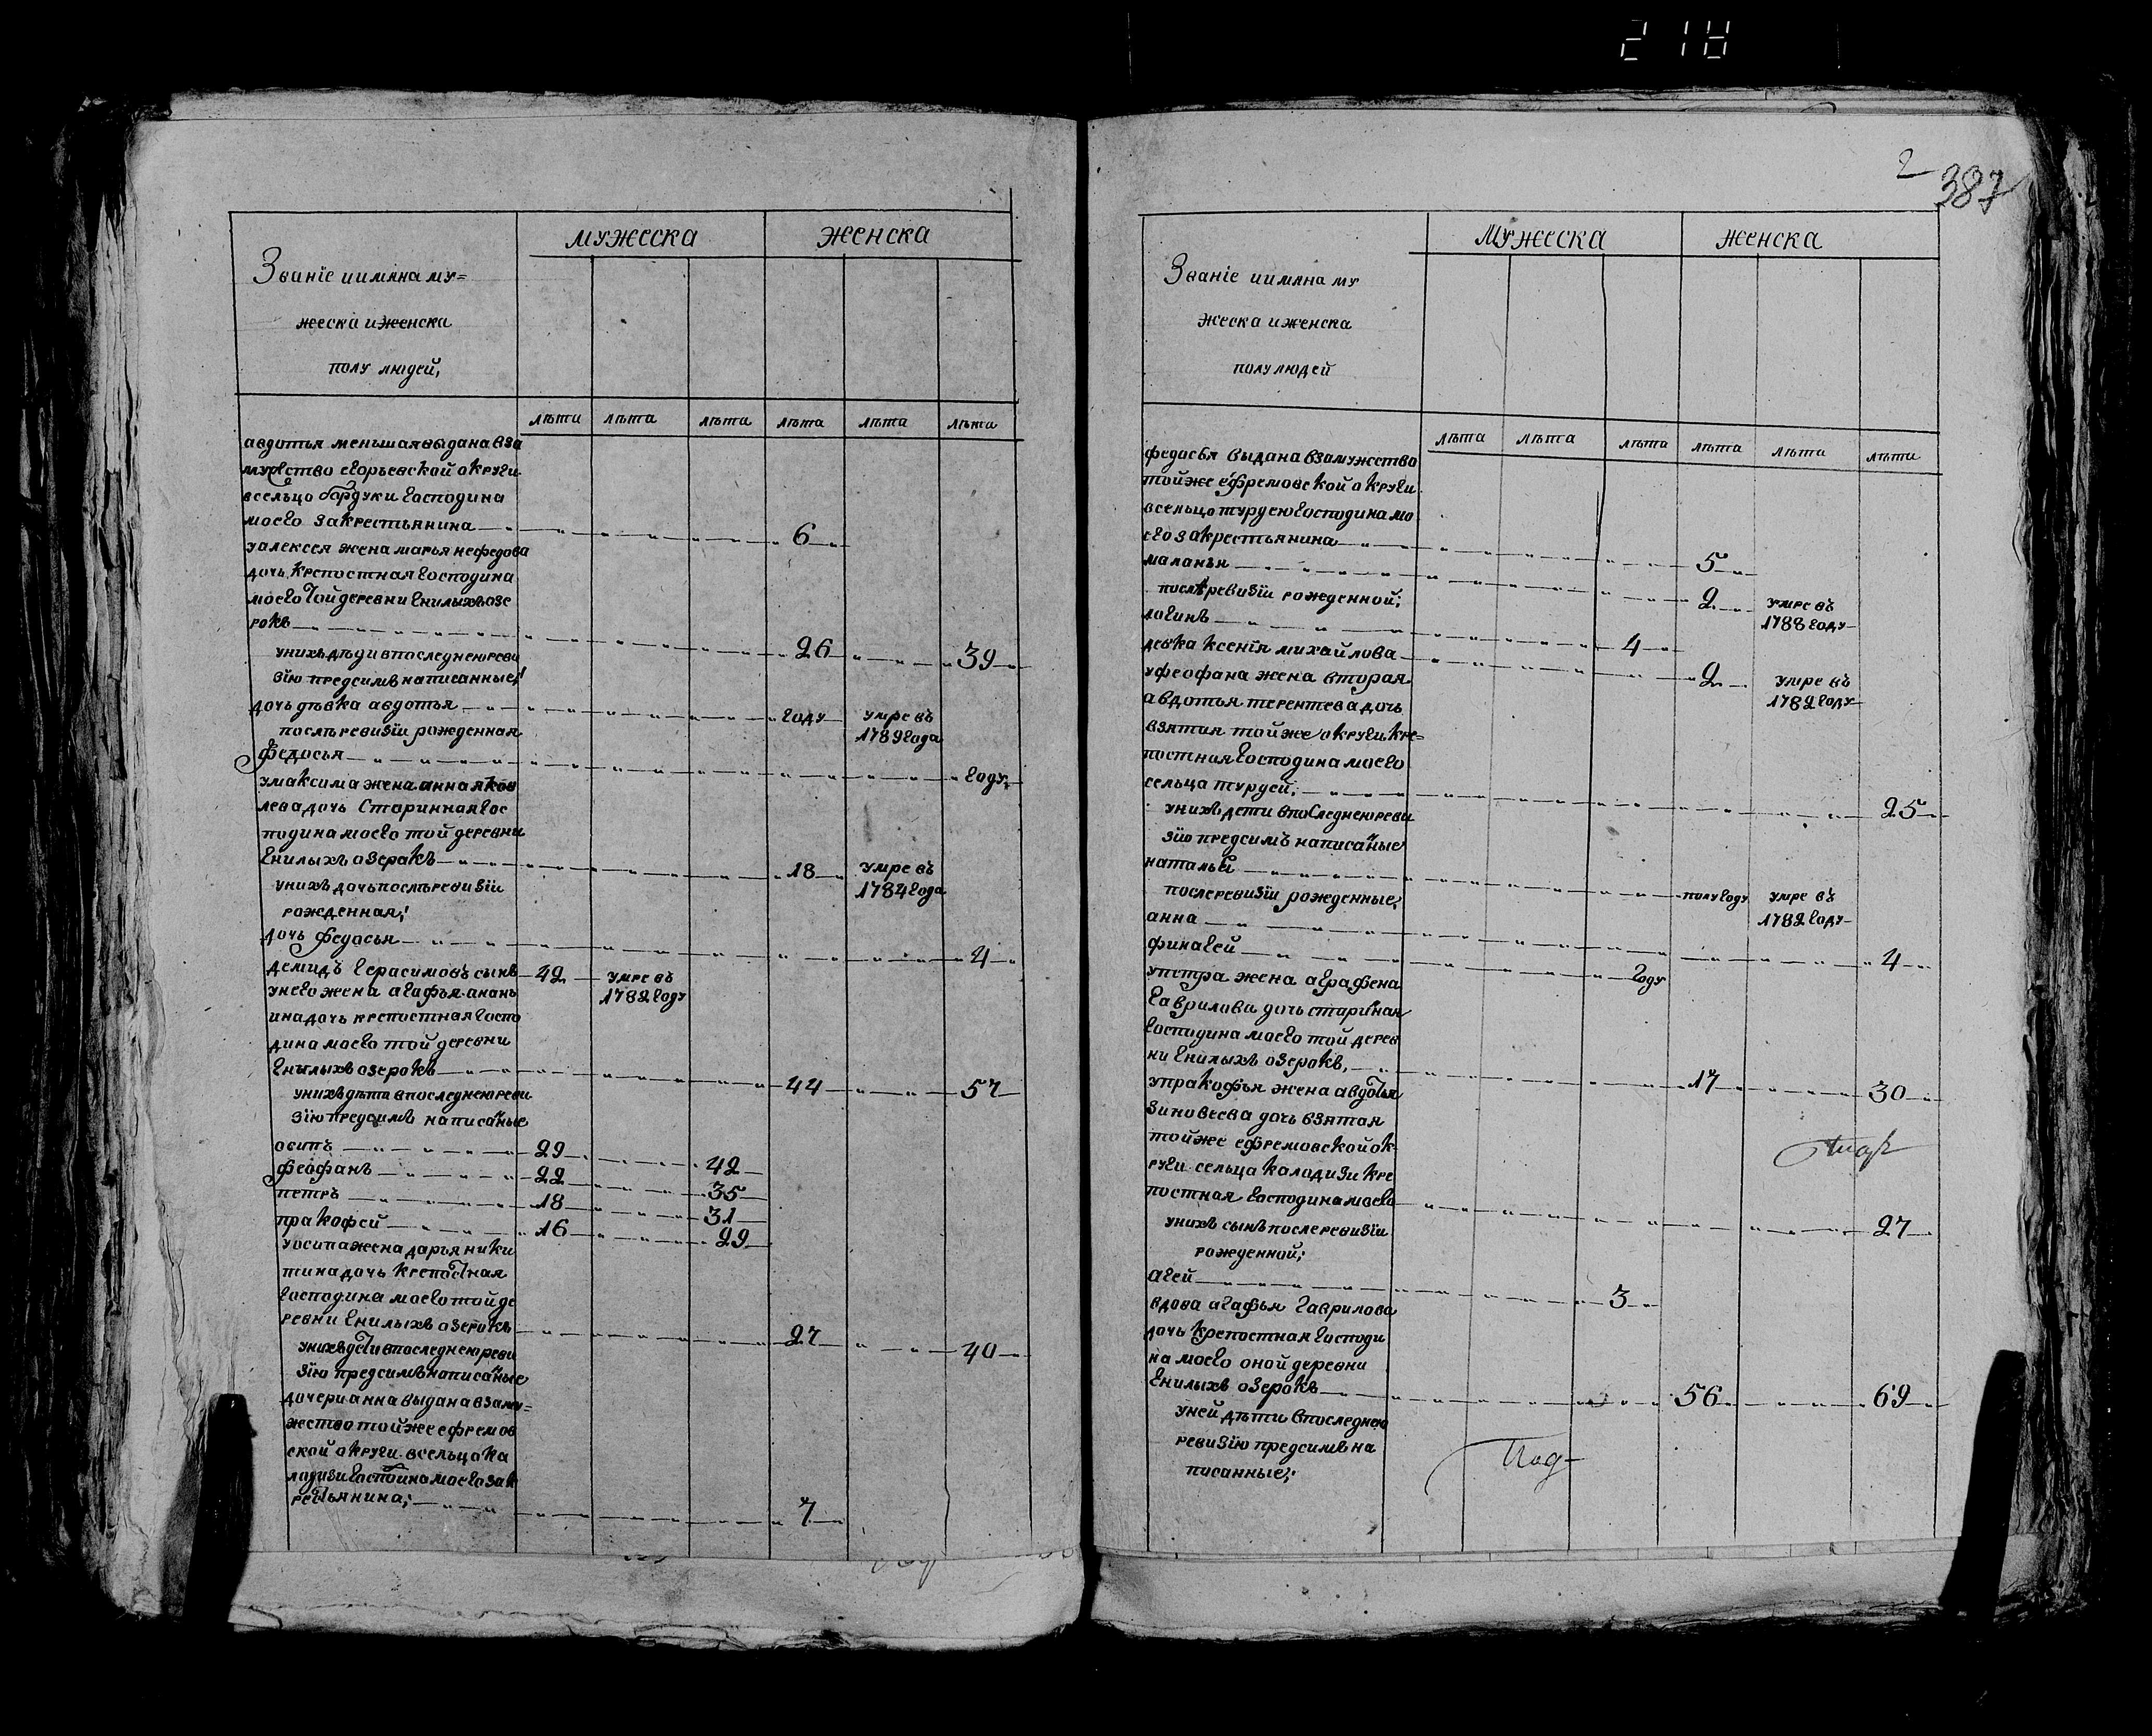 218
2
387
мужеска женска
Званіе иимяна му=
жеска иженска
полу людей,
лѣта лѣта лѣта лѣта лѣта лѣта
авдотья меньшая выдана вза
мужство егорьевской округи
всельцо бардуки господина
моего закрестьянина 6
уалексея жена марья нефедова
дочь крепостная господина
моего той деревни гнилыхъ озе
рокъ 26 39
унихъ дѣти впоследнею реви
зїю предсимъ написанные;
дочь дѣвка авдотья году умре въ
1789 года
послѣ ревизїи рожденная
федосья году
умаксима жена анна яков
лева дочь старинная гос
подина моего той деревни
гнилыхъ озеракъ 18 умре въ
1784 года
унихъ дочь послѣ ревизїи
рожденная;
дочь федосья 4
демидъ герасимовъ сынъ 42 умре въ
1782 году
унего жена агафья анань
ина дочь крепостная госпо
дина моего той деревни
гнилыхъ озерокъ 44 57
унихъ дѣти впоследнею реви
зїю предсимъ написаные
осипъ 29 42
феофанъ 22 35
петръ 18 31
пракофей 16 29
уосипа жена дарья ники
тина дочь крепостная
господина моего той де
ревни гнилыхъ озерокъ 27 40
унихъ дети впоследнею реви
зїю предсимъ написаные
дочери анна выдана взаму=
жество тойже ефремов
ской округи всельцо ка
лодизи господина моего зак
рестьянина; 7
мужеска женска
Званіе иимяна му
жеска иженска
полу людей
лѣта лѣта лѣта лѣта лѣта лѣта
федосья выдана взамужество
тойже ефремовской округи
всельцо турдею господина мо
его закрестьянина 5
маланья 2 умре въ
1788 году
послѣ ревизїи рожденной;
логинъ 4
девка ксенія михайлова 2 умре въ
1782 году
уфеофана жена вторая
авдотья терентева дочь
взятая тойже округи кре=
постная господина моего
сельца турдей; 25
унихъ дети впоследнею реви
зїю предсимъ написаные
наталья полугоду умре въ
1782 году
послеревизїи рожденные;
анна 4
финагей году
упетра жена аграфена
гаврилова дочь стариная
господина моего той дерев
ни гнилыхъ озерокъ, 17 30
упракофья жена авдотья
зиновеева дочь взятая
тойже ефремовской ок
руги сельца калодизи кре
постная господина моего 27
унихъ сынъ послеревизїи
рожденной;
агей 3
вдова агафья гаврилова
дочь крепостная господи
на моего оной деревни
гнилыхъ озерокъ 56 69
уней дѣти впоследнею
ревизїю предсимъ на
писанные;